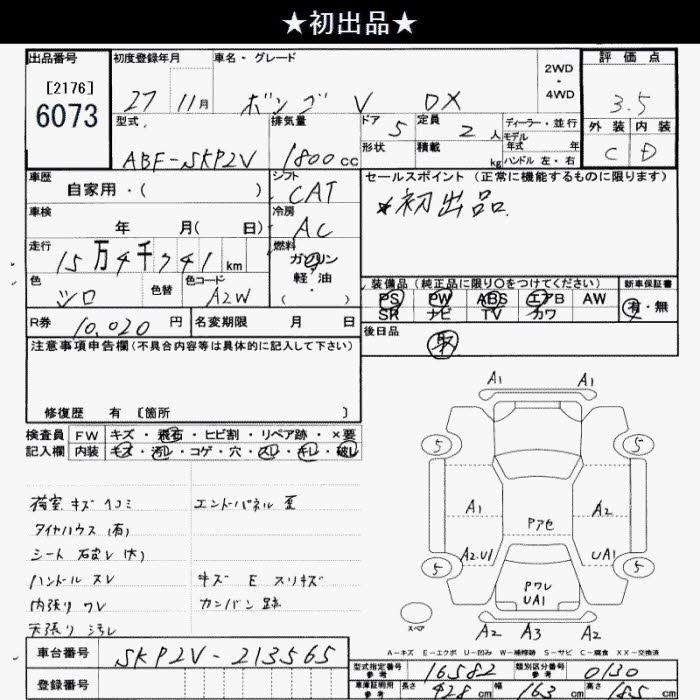 ★初出品★
出品番号
[2176]
6073
初度登録年月
27 11月
車名・グレード
ボンゴ V DX
2WD
・
4WD
評価点
3.5
外装 内装
C D
型式
ABF-SKP2V
排気量
1800cc
ドア 5
形状
定員 2 人
積載 kg
ディーラー・並行
モデル
年式 年
ハンドル 左・右
車歴
自家用・( )
シフト
CAT
セールスポイント(正常に機能するものに限ります)
★初出品。
車検
年 月( 日)
冷房
AC
走行
15万4千741km
燃料
ガソリン
軽・油
( )
色
シロ
色替
色コード
A2W
装備品(純正品に限り○をつけてください)
PS PW ABS エアB AW
SR ナビ TV カワ
新車保証書
有・無
R券 10,020円
名変期限 月 日
後日品
取
注意事項申告欄(不具合内容等は具体的に記入して下さい)
修復歴 有 [箇所 ]
検査員
記入欄
FW キズ・飛石・ヒビ割・リペア跡・×要
内装 キズ・汚レ・コゲ・穴・スレ・キレ・破レ
荷室 キズ ヘコミ
タイヤハウス(有)
ハンドル スレ
内張り ワレ
天張り 汚レ
エンドパネル 歪
キズ E スリキズ
カンバン跡
A1 A1
5 5
A1 A2
Pアセ
A2.U1 UA1
5 5
Pワレ
UA1
スペア
A2 A3 A2
A-キズ E-エクボ U-凹み W-補修跡 S-サビ C-腐食 XX-交換済
車台番号 SKP2V-213565
登録番号
型式指定番号
参考
16582
類別区分番号
参考
0130
車庫証明用
参考
長さ 428cm 幅 163cm 高さ 185cm